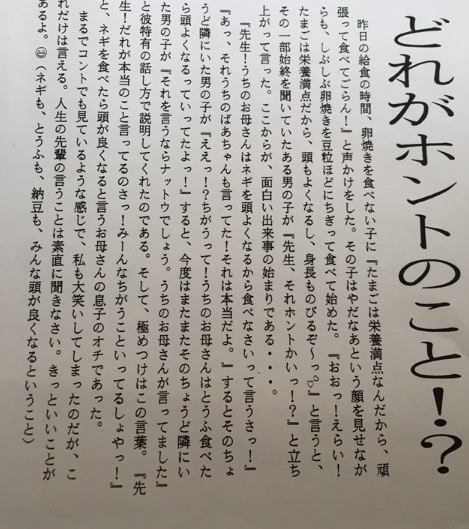 どれがホントのこと！？
昨日の給食の時間、卵焼きを食べない子に『たまごは栄養満点なんだから、頑
張って食べてごらん！』と声かけをした。その子はやだなあという顔を見せなが
らも、しぶしぶ卵焼きを豆粒ほどにちぎって食べて始めた。『おおっ！えらい！
たまごは栄養満点だから、頭もよくなるし、身長ものびるぞ～っ』と言うと、
その一部始終を聞いていたある男の子が『先生、それホントかいっ！？』と立ち
上がって言った。ここからが、面白い出来事の始まりである・・・。
『先生！うちのお母さんはネギを頭よくなるから食べなさいって言うさっ！』
『あっ、それうちのばあちゃんも言ってた！それは本当だよ。』するとそのちょ
うど隣にいた男の子が『ええっ！？ちがうって！うちのお母さんはとうふ食べた
ら頭よくなるっていってたよっ！』すると、今度はまたまたそのちょうど隣にい
た男の子が『それを言うならナットウでしょう。うちのお母さんが言ってました』
と彼特有の話し方で説明してくれたのである。そして、極めつけはこの言葉。『先
生！だれが本当のこと言ってるのさっ！みーんなちがうこといってるしょやっ！』
と、ネギを食べたら頭が良くなると言うお母さんの息子のオチであった。
まるでコントでも見ているような感じで、私も大笑いしてしまったのだが、こ
れだけは言える。人生の先輩の言うことは素直に聞きなさい。きっといいことが
あるよ。😄（ネギも、とうふも、納豆も、みんな頭が良くなるということ）